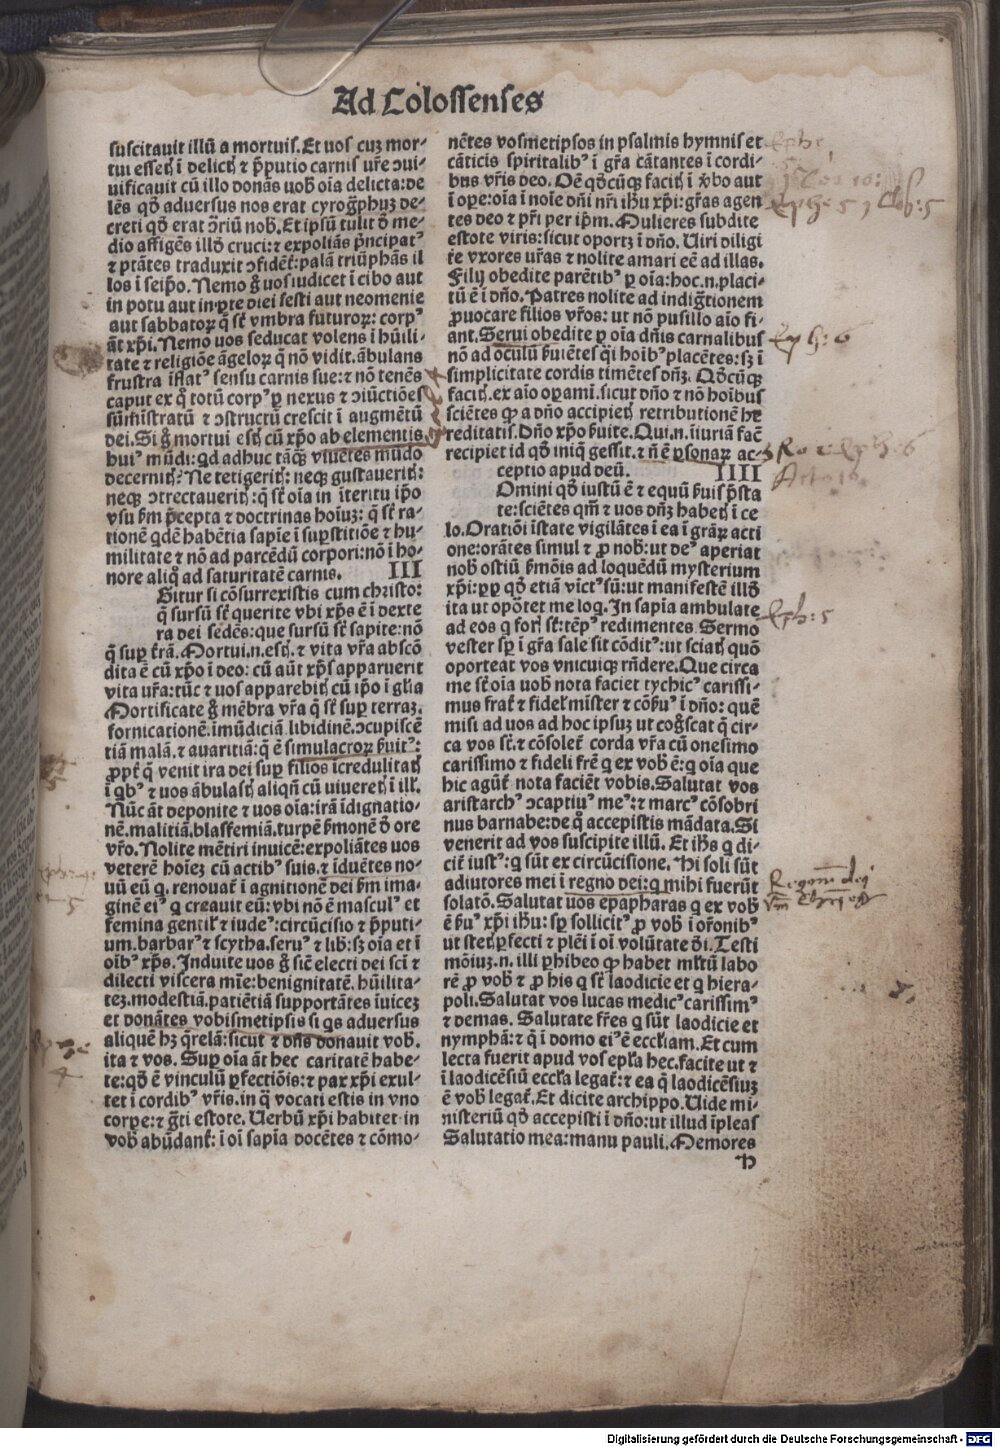 Ad Colossenses
suscitauit illū a mortuis. Et uos cuz mor-
tui essetꝭ ī delictꝭ ⁊ p̄putio carnis ur̄e ꝯui-
uificauit cū illo donās uob̄ oīa delicta: de
lēs qđ aduersus nos erat cyrogp̄huz de-
creti qđ erat ꝯriū nob̄. Et ipsū tulit đ me-
dio affigēs illđ cruci: ⁊ expoliās p̄ncipatꝰ
⁊ ptātes traduxit ꝯfidēt̄: palā triūphās il
los ī seip̄o. Nemo g̊ uos iudicet ī cibo aut
in potu aut in ꝑte diei festi aut neomenie
aut sabbatoꝝ q̄ st̄ vmbra futuroꝝ: corpꝰ
āt xp̄i. Nemo uos seducat volens ī hūili-
tate ⁊ religiōe āgeloꝝ q̄ nō vidit. ābulans
frustra īflatꝰ sensu carnis sue: ⁊ nō tenēs
caput ex q̊ totū corpꝰ ꝑ nexus ⁊ ꝯiūctiōes
sūmīstratū ⁊ ꝯstructū crescit ī augmētū
dei. Si g̊ mortui estꝭ cū xp̄o ab elementis
huiꝰ mūdi: qd adhuc tāq̄ꝫ viuētes mūdo
decernitꝭ? Ne tetigeritꝭ: neqꝫ gustaueritꝭ:
neqꝫ ꝯtrectaueritꝭ: q̄ st̄ oīa in īteritu ip̄o
vsu ẜm p̄cepta ⁊ doctrinas hoīuꝫ: q̄ st̄ ra-
tionē qdē habētia sapie ī suꝑstitiōe ⁊ hu-
militate ⁊ nō ad parcēdū corpori: nō ī ho-
nore aliq̊ ad saturitatē carnis. III
Gitur si cōsurrexistis cum christo:
q̄ sursū st̄ querite vbi xp̄s ē ī dexte
ra dei sedēs: que sursū st̄ sapite: nō
q̄ suꝑ t̄rā. Mortui. n. estꝭ. ⁊ vita vr̄a abscō
dita ē cū xp̄o ī deo: cū aūt xp̄s apparuerit
vita ur̄a: tūc ⁊ uos apparebitꝭ cū ip̄o ī gl̄ia
Mortificate g̊ mēbra vr̄a q̄ st̄ suꝑ terraꝫ.
fornicationē. īmūdiciā libidinē. ꝯcupiscē
tiā malā. ⁊ auaritiā: q̄ ē simulacroꝝ ẜuitꝰ:
ꝓpt̄ q̄ venit ira dei suꝑ filios īcredulitatꝭ
ī qbꝰ ⁊ uos ābulastꝭ aliqn̄ cū uiueretꝭ ī ill̄.
Nūc āt deponite ⁊ uos oīa: irā īdignatio-
nē. malitiā. blasfemiā. turpē ẜmonē đ ore
vr̄o. Nolite mētiri inuicē: expoliātes uos
veterē hoīeꝫ cū actibꝰ suis. ⁊ īduētes no-
uū eū q. renouat̄ ī agnitionē dei ẜm ima-
ginē eiꝰ q creauit eū: vbi nō ē masculꝰ et
femina gentil̄ ⁊ iudeꝰ: circūcisio ⁊ p̄puti-
um. barbarꝰ ⁊ scytha. seruꝰ ⁊ lib̄: sꝫ oīa et ī
oībꝰ xp̄s. Induite uos g̊ sic̄ electi dei sc̄i ⁊
dilecti viscera mīe: benignitatē. hūilita-
teꝫ. modestiā. patiētiā supportātes īuiceꝫ
et donātes vobismetipsis si qs aduersus
aliquē hꝫ q̄relā: sicut ⁊ dn̄s donauit vob̄.
ita ⁊ vos. Suꝑ oīa āt hec caritatē habe-
te: qđ ē vinculū ꝑfectiōis: ⁊ pax xp̄i exul-
tet ī cordibꝰ vr̄is. in q̄ vocati estis in vno
corpe: ⁊ gti estote. Uerbū xp̄i habitet in
vob̄ abūdant̄: ī oī sapīa docētes ⁊ cōmo-
nētes vosmetipsos in psalmis hymnis et
cāticis spiritalibꝰ ī gr̄a cātantes ī cordi-
bus vr̄is deo. Oē qđcūqꝫ facitꝭ ī v̄bo aut
ī oꝑe: oīa ī noīe dn̄i nr̄i ihū xp̄i: gr̄as agen
tes deo ⁊ pr̄i per ip̄m. Mulieres subdite
estote viris: sicut oportꝫ ī dn̄o. Uiri diligi
te vxores ur̄as ⁊ nolite amari eē ad illas.
Filij obedite parētibꝰ ꝑ oīa: hoc. n. placi-
tū ē ī dn̄o. Patres nolite ad indigtionem
ꝓuocare filios vr̄os: ut nō pusillo aīo fi-
ant. Serui obedite ꝑ oīa dn̄is carnalibus
nō ad oculū ẜuiētes q̄i hoībꝰ placētes: sꝫ ī
simplicitate cordis timētes dn̄ꝫ. Qđcūqꝫ
facitꝭ. ex aīo oꝑami. sicut dn̄o ⁊ nō hoībus
sciētes ꝙ a dn̄o accipietꝭ retributionē he
reditatis. Dn̄o xp̄o ẜuite. Qui. n. īiuriā fac̄
recipiet id qđ iniq̄ gessit. ⁊ n̄ ē ꝑsonaꝝ ac-
ceptio apud deū. IIII
Omini qđ iustū ē ⁊ equū ẜuis p̄sta
te: sciētes qm̄ ⁊ uos dn̄ꝫ habetꝭ ī ce
lo. Oratiōi īstate vigilātes ī ea ī grāꝝ acti
one: orātes simul ⁊ ꝓ nob̄: ut deꝰ aperiat
nob̄ ostiū ẜmōis ad loquēdū mysterium
xp̄i: ꝓꝑ qđ etiā vīctꝰ sū: ut manifestē illđ
ita ut opōtet me loq. In sapīa ambulate
ad eos q forꝭ st̄: tēpꝰ redimentes Sermo
vester sꝑ ī gr̄a sale sit cōditꝰ: ut sciatꝭ quō
oporteat vos vnicuiqꝫ rn̄dere. Que circa
me st̄ oīa uob̄ nota faciet tychicꝰ carissi-
mus frat̄ ⁊ fidel̄ mīster ⁊ cōẜuꝰ ī dn̄o: quē
misi ad uos ad hoc ipsuꝫ ut cogscat q̄ cir-
ca vos st̄. ⁊ cōsolet̄ corda vr̄a cū onesimo
carissimo ⁊ fideli fr̄e q ex vob̄ ē: q oīa que
hic agūt̄ nota faciēt vobis. Salutat vos
aristarchꝰ ꝯcaptiuꝰ meꝰ: ⁊ marcꝰ cōsobri
nus barnabe: de q̊ accepistis mādata. Si
venerit ad vos suscipite illū. Et ihs̄ q di-
cit̄ iustꝰ: q sūt ex circūcisione. Hi soli sūt
adiutores mei ī regno dei: q mihi fuerūt
solatō. Salutat uos epapharas q ex vob̄
ē ẜuꝰ xp̄i ihū: sꝑ sollicitꝰ ꝓ vob̄ ī or̄onibꝰ
ut stetꝭ ꝑfecti ⁊ plēi ī oī volūtate đi. Testi
mōiuꝫ. n. illi ꝑhibeo ꝙ habet ml̄tū labo
rē ꝓ vob̄ ⁊ ꝓ his q st̄ laodicie et q hiera-
poli. Salutat vos lucas medicꝰ carissimꝰ
⁊ demas. Salutate fr̄es q sūt laodicie et
nymphā: ⁊ q̄ ī domo eiꝰ ē eccl̄iam. Et cum
lecta fuerit apud vos epl̄a hec. facite ut ⁊
ī laodicēsiū eccl̄a legat̄: ⁊ ea q̄ laodicēsiuꝫ
ē vob̄ legat̄. Et dicite archippo. Uide mi-
nisteriū qđ accepisti ī dn̄o: ut illud īpleas
Salutatio mea: manu pauli. Memores
h
Ephe 5
Eph: 6
Eph: 6
Eph: 5
Digitalisierung gefördert durch die Deutsche Forschungsgemeinschaft - DFG